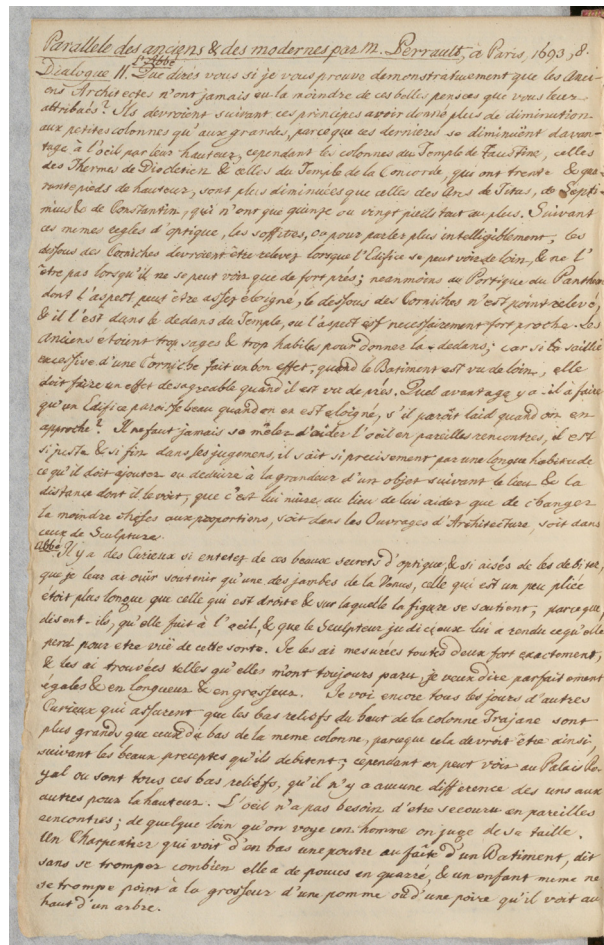 Parallele des anciens & des modernes par m. Perrault, à Paris, 1693, 8.
L'Abbé
Dialogue II. Que dirés vous si je vous preuve demonstrativement que les Anci-
ens Architectes n'ont jamais eu la moindre de ces belles pensées que vous leur
attribués? Ils devroient suivant ces principes avoir donné plus de diminution
aux petites colonnes qu'aux grandes, parceque ces dernieres se diminuënt davan-
tage à l'oëil par leur hauteur, cependant les colonnes du Temple de Faustine, celles
des Thermes de Diocletien & celles du Temple de la Concorde, qui ont trente & qua-
rante pieds de hauteur, sont plus diminuées que celles des Arcs de Titus, de Septi-
mius & de Constantin, qui n'ont que quinze ou vingt pieds tout au plus. Suivant
ces memes regles d'optique, les soffites, ou pour parler plus intelligiblement, les
dessous des Corniches devroient être relevez lorsque l'Edifice se peut voir de loin, & ne l'
être pas lorsqu'il ne se peut voir que de fort prés; neanmoins au Portique du Pantheon
dont l'aspect peut être assez éloigné, le dessous des Corniches n'est point relevé,
& il l'est dans le dedans du Temple, ou l'aspect est necessairement fort proche. Les
anciens étoient trop sages & trop habiles pour donner la-dedans; car si la saillie
excessive d'une Corniche fait un bon effet, quand le Batiment est vu de loin, elle
doit faire un effet desagreable quand il est vu de prés. Quel avantage y a-il à faire
qu'un Edifice paroisse beau quand on en est eloigné, s'il paroit laid quand on en
approche? Il ne faut jamais se mêler d'aider l'oëil en pareilles rencontres, il est
si juste & si fin dans ses jugemens, il sait si precisement par une longue habitude
ce qu'il doit ajouter ou deduire à la grandeur d'un objet suivant le lieu & la
distance dont il le voit, que c'est lui nuire au lieu de lui aider que de changer
la moindre chose aux proportions, soit dans les Ouvrages d'Architecture, soit dans
ceux de Sculpture.
Abbé Il y a des Curieux si entetez de ces beaux secrets d'optique, & si aisés de les debiter,
que je leur ai ouïr soutenir qu'une des jambes de la Venus, celle qui est un peu pliée
étoit plus longue que celle qui est droite & sur laquelle la figure se soutient, parceque,
disent-ils, qu'elle fuit à l'oeil, & que le Sculpteur judicieux lui a rendu ce qu'elle
perd pour etre vuë de cette sorte. Je les ai mesurées toutes deux fort exactement,
& les ai trouvées telles qu'elles m'ont toujours paru, je veux dire parfaitement
égales & en longueur & en grosseur. Je voi encore tous les jours d'autres
Curieux qui assurent que les bas reliefs du haut de la colonne Trajane sont
plus grands que ceux du bas de la meme colonne, parceque cela devroit être ainsi,
suivant les beaux preceptes qu'ils debitent; cependant on peut voir au Palais Ro-
yal ou sont tous ces bas reliefs, qu'il n'y a aucune difference des uns aux
autres pour la hauteur. L'oëil n'a pas besoin d'etre secouru en pareilles
rencontres; de quelque loin qu'on voye un homme on juge de sa taille.
Un Charpentier qui voit d'en bas une poutre au faîte d'un Batiment, dit
sans se tromper combien elle a de pouces en quarré, & un enfant meme ne
se trompe point à la grosseur d'une pomme ou d'une poire qu'il voit au
haut d'un arbre.